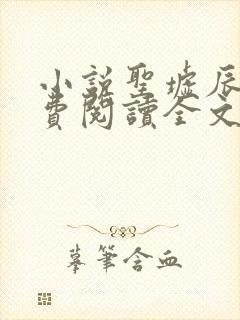 小說聖墟辰
費閱讀全文
摹筆含血